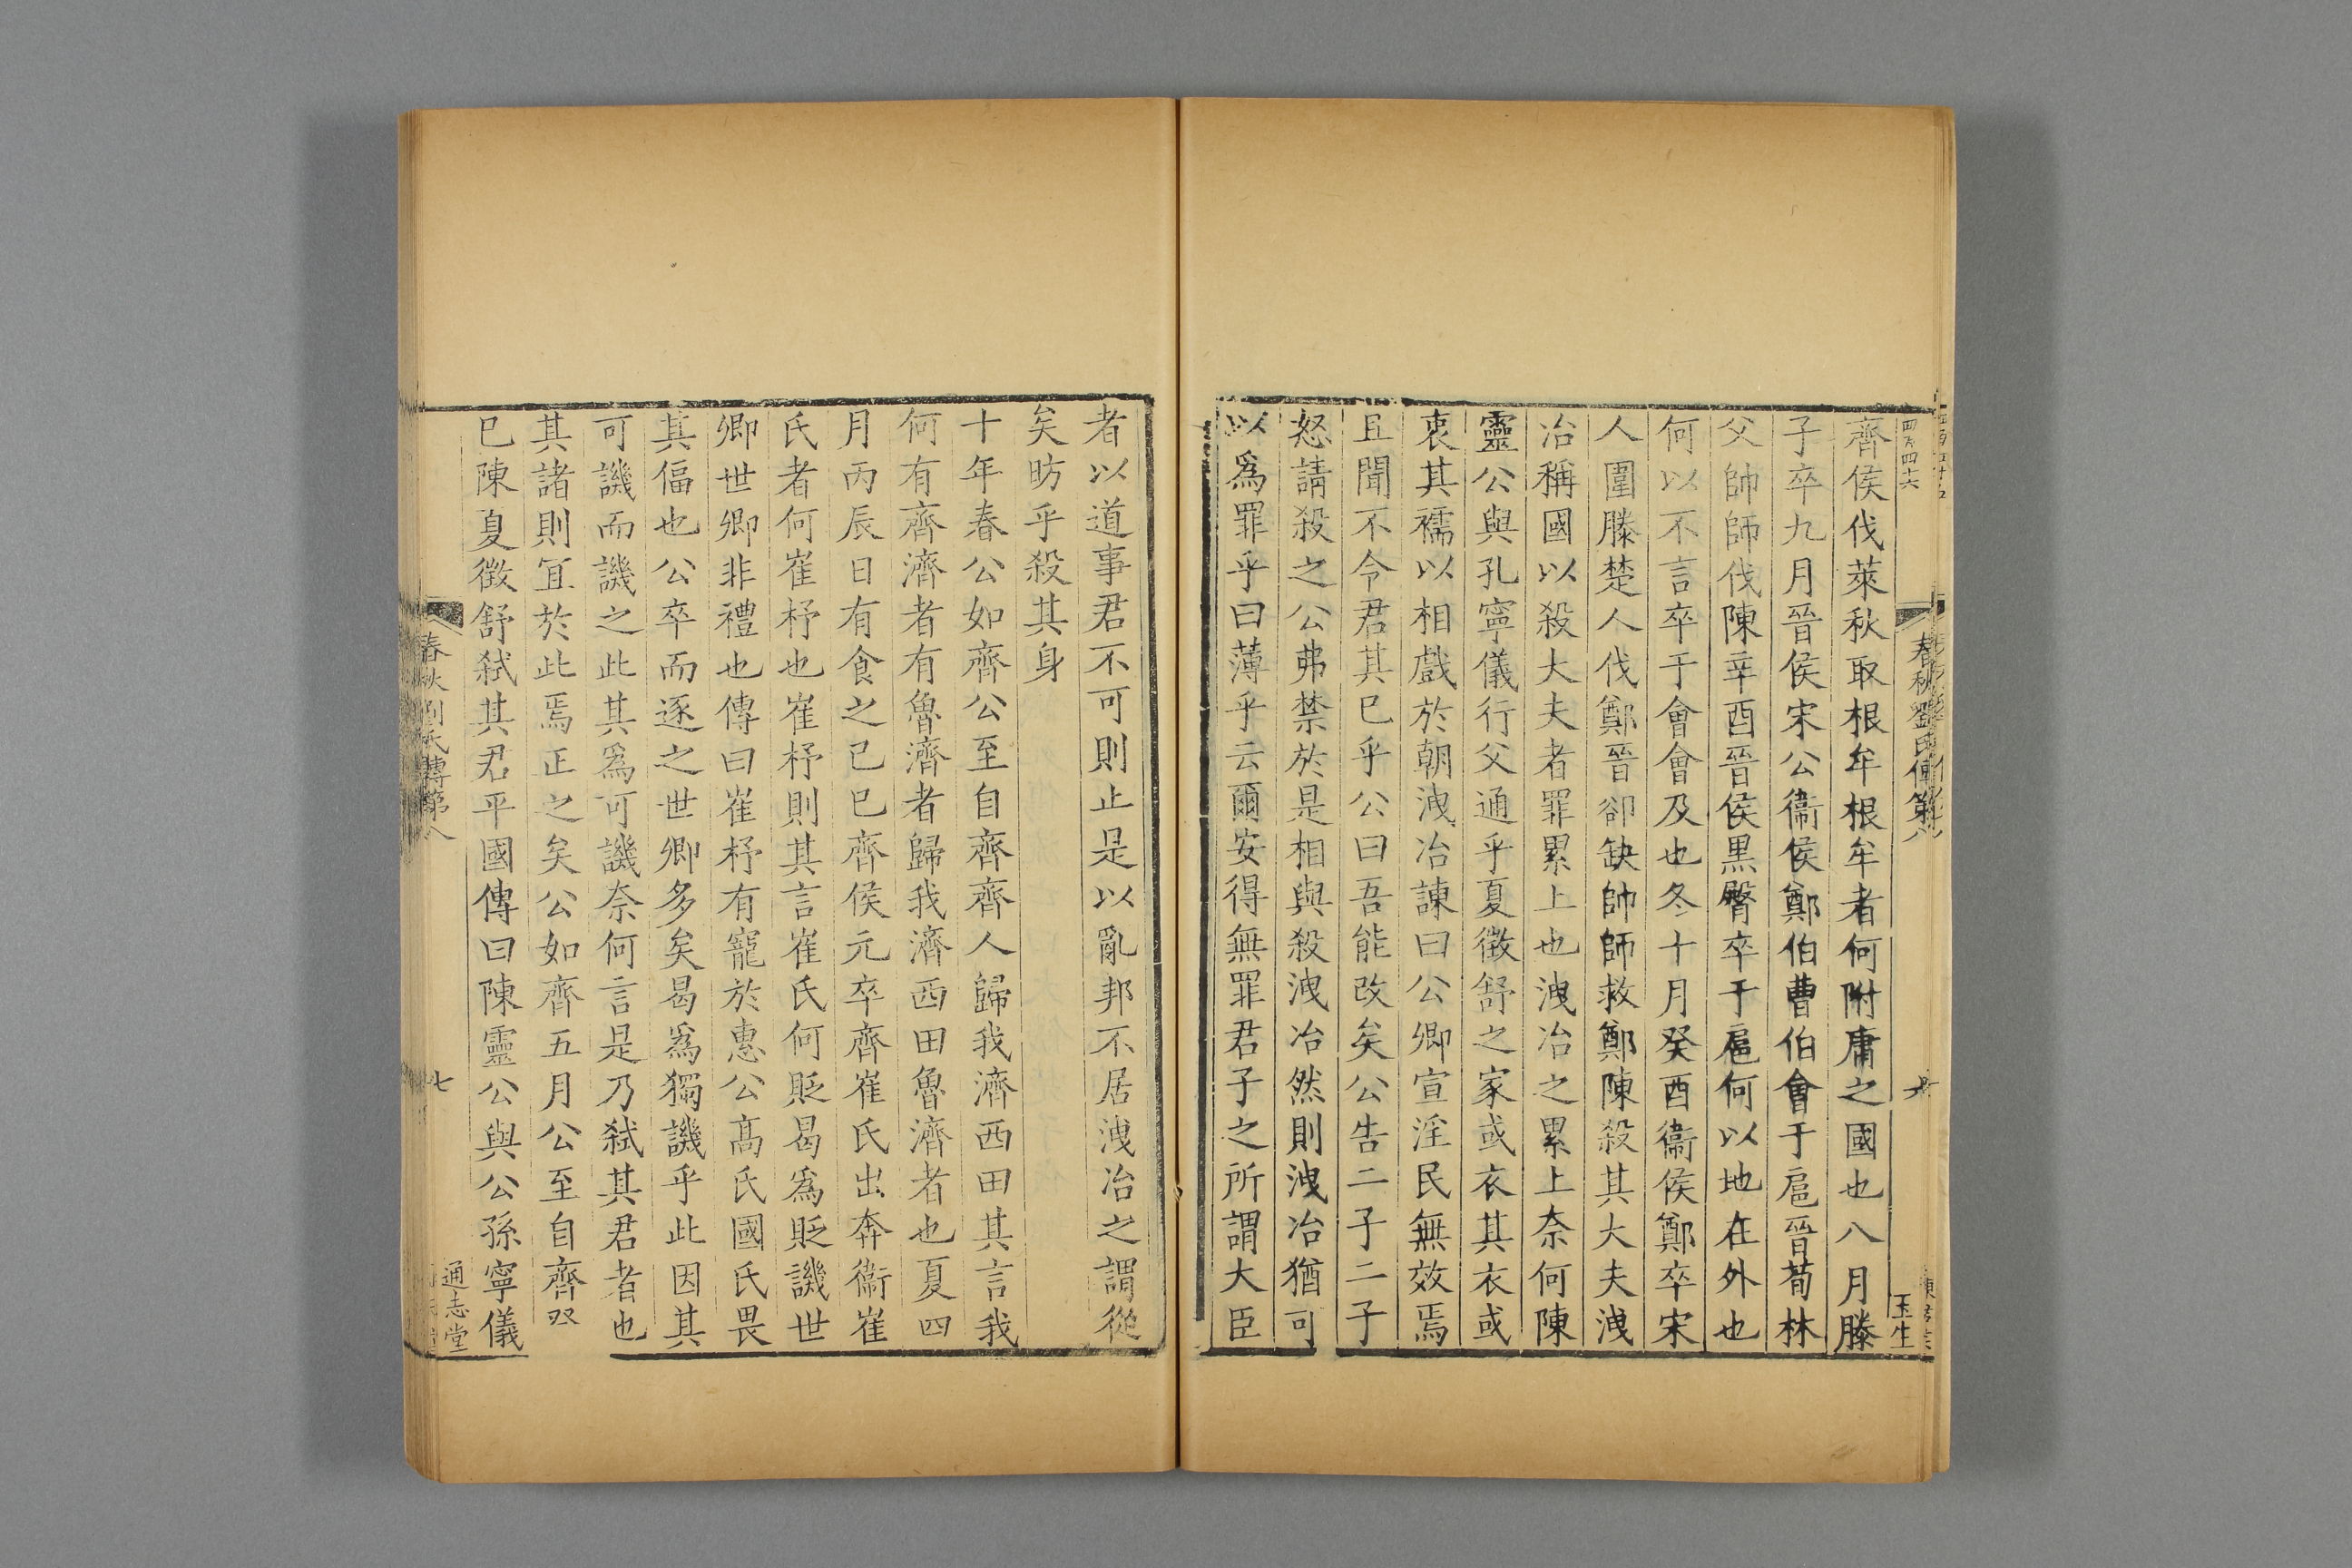 春秋劉氏傳第八
玉生
齊侯伐萊秋取根牟根牟者何附庸之國也八月滕
子卒九月晉侯宋公衞侯鄭伯曹伯會于扈晉荀林
父帥師伐陳辛酉晉侯黑臀卒于扈何以地在外也
何以不言卒于會會及也冬十月癸酉衞侯鄭卒宋
人圍滕楚人伐鄭晉卻缺帥師救鄭陳殺其大夫洩
冶稱國以殺大夫者罪累上也洩冶之累上奈何陳
靈公與孔寧儀行父通乎夏徵舒之家或衣其衣或
衷其襦以相戲於朝洩冶諫曰公卿宣淫民無效焉
且聞不令君其已乎公曰吾能改矣公告二子二子
怒請殺之公弗禁於是相與殺洩冶然則洩冶猶可
以爲罪乎曰薄乎云爾安得無罪君子之所謂大臣
者以道事君不可則止是以亂邦不居洩冶之謂從
矣昉乎殺其身
十年春公如齊公至自齊齊人歸我濟西田其言我
何有齊濟者有魯濟者歸我濟西田魯濟者也夏四
月丙辰日有食之己巳齊侯元卒齊崔氏出奔衞崔
氏者何崔杼也崔杼則其言崔氏何貶曷爲貶譏世
卿世卿非禮也傳曰崔杼有寵於惠公高氏國氏畏
其偪也公卒而逐之世卿多矣曷爲獨譏乎此因其
可譏而譏之此其爲可譏奈何言是乃弑其君者也
其諸則宜於此焉正之矣公如齊五月公至自齊癸
巳陳夏徵舒弑其君平國傳曰陳靈公與公孫寧儀
春秋劉氏傳第八
七
通志堂